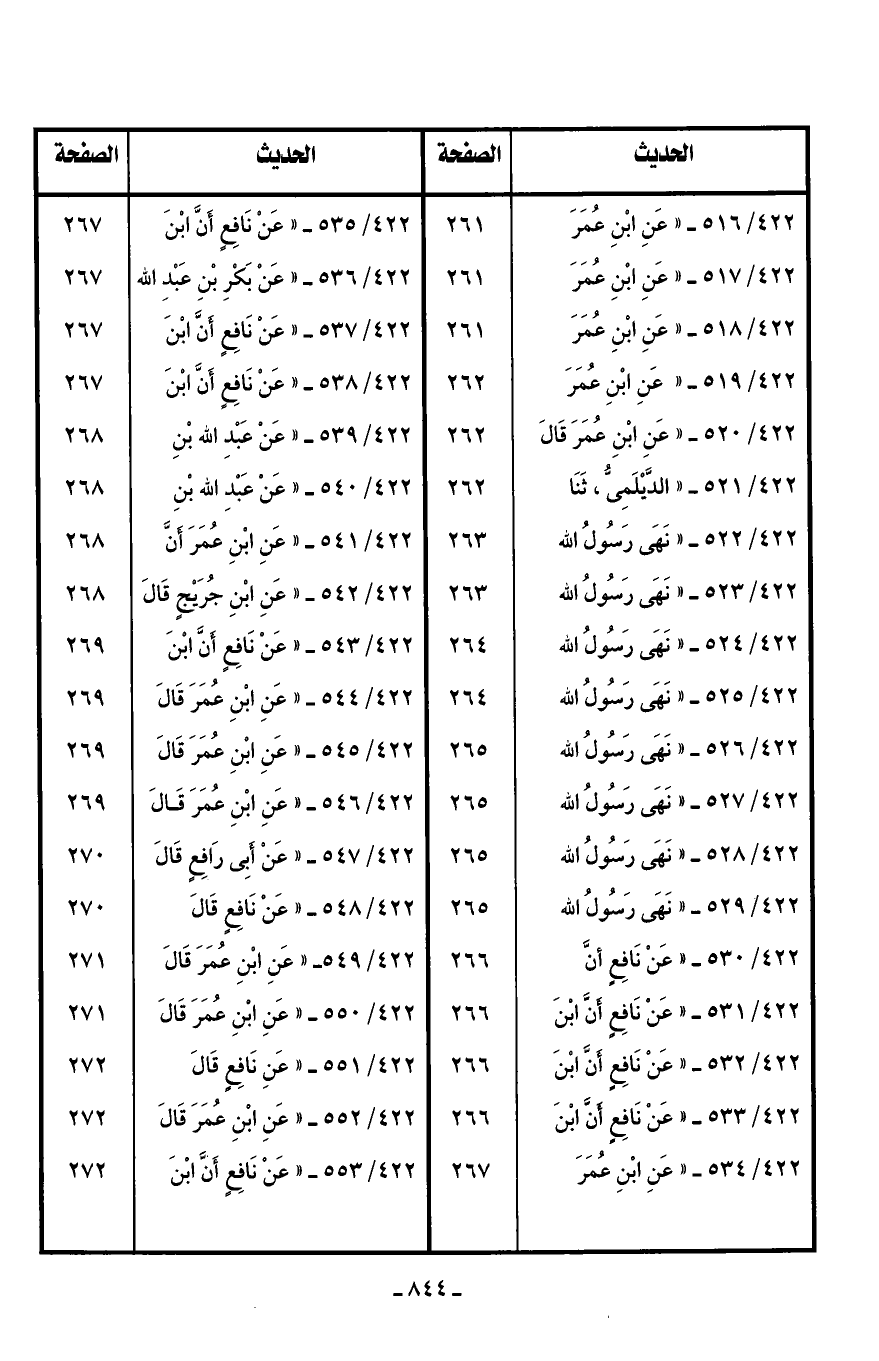 الحديث الصفحة الحديث الصفحة
٤٢٢/ ٥١٦ ـ « عَنِ ابْنِ عُمَرَ ٢٦١ ٤٢٢/ ٥٣٥ ـ « عَنْ نَافِعٍ أَنَّ ابْنَ ٢٦٧
٤٢٢/ ٥١٧ ـ « عَنِ ابْنِ عُمَرَ ٢٦١ ٤٢٢/ ٥٣٦ ـ « عَنْ بَكْرِ بْنِ عَبْدِ الله ٢٦٧
٤٢٢/ ٥١٨ ـ « عَنِ ابْنِ عُمَرَ ٢٦١ ٤٢٢/ ٥٣٧ ـ « عَنْ نَافِعٍ أَنَّ ابْنَ ٢٦٧
٤٢٢/ ٥١٩ ـ « عَنِ ابْنِ عُمَرَ ٢٦٢ ٤٢٢/ ٥٣٨ ـ « عَنْ نَافِعٍ أَنَّ ابْنَ ٢٦٧
٤٢٢/ ٥٢٠ ـ « عَنِ ابْنِ عُمَرَ قَالَ ٢٦٢ ٤٢٢/ ٥٣٩ ـ « عَنْ عَبْدِ الله بْنِ ٢٦٨
٤٢٢/ ٥٢١ ـ « الدَّيْلَمِىُّ ، ثَنَا ٢٦٢ ٤٢٢/ ٥٤٠ ـ « عَنْ عَبْدِ الله بْنِ ٢٦٨
٤٢٢/ ٥٢٢ ـ « نَهَى رَسُولُ الله ٢٦٣ ٤٢٢/ ٥٤١ ـ « عَنِ ابْنِ عُمَرَ أَنَّ ٢٦٨
٤٢٢/ ٥٢٣ ـ « نَهَى رَسُولُ الله ٢٦٣ ٤٢٢/ ٥٤٢ ـ « عَنِ ابْنِ جُرَيْجٍ قَالَ ٢٦٨
٤٢٢/ ٥٢٤ ـ « نَهَى رَسُولُ الله ٢٦٤ ٤٢٢/ ٥٤٣ ـ « عَنْ نَافِعٍ أَنَّ ابْنَ ٢٦٩
٤٢٢/ ٥٢٥ ـ « نَهَى رَسُولُ الله ٢٦٤ ٤٢٢/ ٥٤٤ ـ « عَنِ ابْنِ عُمَرَ قَالَ ٢٦٩
٤٢٢/ ٥٢٦ ـ « نَهَى رَسُولُ الله ٢٦٥ ٤٢٢/ ٥٤٥ ـ « عَنِ ابْنِ عُمَرَ قَالَ ٢٦٩
٤٢٢/ ٥٢٧ ـ « نَهَى رَسُولُ الله ٢٦٥ ٤٢٢/ ٥٤٦ ـ « عَنِ ابْنِ عُمَرَ قَـالَ ٢٦٩
٤٢٢/ ٥٢٨ ـ « نَهَى رَسُولُ الله ٢٦٥ ٤٢٢/ ٥٤٧ ـ « عَنْ أَبِى رَافِعٍ قَالَ ٢٧٠
٤٢٢/ ٥٢٩ ـ « نَهَى رَسُولُ الله ٢٦٥ ٤٢٢/ ٥٤٨ ـ « عَنْ نَافِعٍ قَالَ ٢٧٠
٤٢٢/ ٥٣٠ ـ « عَنْ نَافِعٍ أنَّ ٢٦٦ ٤٢٢/ ٥٤٩ـ « عَنِ ابْنِ عُمَرَ قَالَ ٢٧١
٤٢٢/ ٥٣١ ـ « عَنْ نَافِعٍ أَنَّ ابْنَ ٢٦٦ ٤٢٢/ ٥٥٠ ـ « عَنِ ابْنِ عُمَرَ قَالَ ٢٧١
٤٢٢/ ٥٣٢ ـ « عَنْ نَافِعٍ أَنَّ ابْنَ ٢٦٦ ٤٢٢/ ٥٥١ ـ « عَنِ نَافِعٍ قَالَ ٢٧٢
٤٢٢/ ٥٣٣ ـ « عَنْ نَافِعٍ أَنَّ ابْنَ ٢٦٦ ٤٢٢/ ٥٥٢ ـ « عَنِ ابْنِ عُمَرَ قَالَ ٢٧٢
٤٢٢/ ٥٣٤ ـ « عَنِ ابْنِ عُمَرَ ٢٦٧ ٤٢٢/ ٥٥٣ ـ « عَنْ نَافِعٍ أَنَّ ابْنَ ٢٧٢
ـ ٨٤٤ ـ